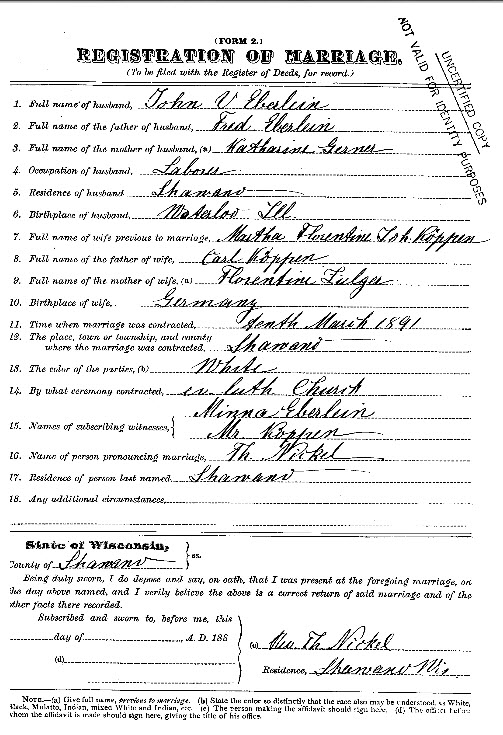 (FORM 2.)
REGISTRATION OF MARRIAGE.
(To be filed with the Register of Deeds, for record.)
NOT VALID FOR IDENTITY PURPOSES
UNCERTIFIED COPY
1. Full name of husband, John V Eberlein
2. Full name of the father of husband, Fred Eberlein
3. Full name of the mother of husband, (a) Katharine Gerner
4. Occupation of husband, Laborer
5. Residence of husband Shawano
6. Birthplace of husband, Waterloo Ill
7. Full name of wife previous to marriage, Martha Florentine Joh. Köppen
8. Full name of the father of wife, Carl Köppen
9. Full name of the mother of wife, (a) Florentine Zulger
10. Birthplace of wife, Germany
11. Time when marriage was contracted, tenth March 1891
12. The place, town or township, and county
where the marriage was contracted, Shawano
13. The color of the parties, (b) White
14. By what ceremony contracted, ev luth Church
15. Names of subscribing witnesses, Minna Eberlein
Mr Koppen
16. Name of person pronouncing marriage, Th Nickel
17. Residence of person last named, Shawano
18. Any additional circumstances,
State of Wisconsin, } ss.
County of Shawano
Being duly sworn, I do depose and say, on oath, that I was present at the foregoing marriage, on
the day above named, and I verily believe the above is a correct return of said marriage and of the
other facts there recorded.
Subscribed and sworn to, before me, this
day of , A. D. 188
(c) Rev. Th Nickel
(d)
Residence, Shawano Wis
NOTE.—(a) Give full name, previous to marriage. (b) State the color so distinctly that the race also may be understood, as White,
Black, Mulatto, Indian, mixed White and Indian, etc. (c) The person making the affidavit should sign here. (d) The officer before
whom the affidavit is made should sign here, giving the title of his office.